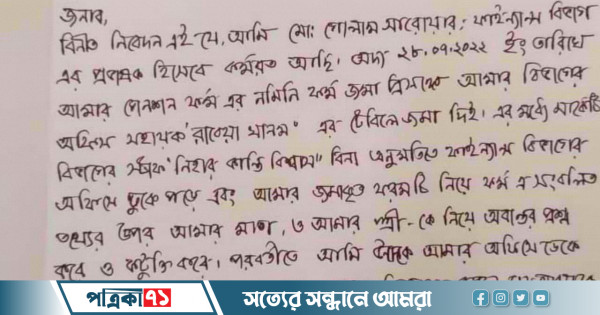 জনাব,
বিনীত নিবেদন এই যে, আমি মো: গোলাম সারোয়ার, ফাইন্যান্স বিভাগ
এর প্রভাষক হিসেবে কর্মরত আছি। অদ্য ২৮.০৭.২০২২ ইং তারিখে
আমার পেনশন ফর্ম এর নমিনি ফর্ম জমা আমার বিভাগের
অফিস সহায়ক "রাবেয়া খানম" এর টেবিলে জমা দিই। এর মধ্যে মার্কেটিং
বিভাগের স্টাফ "নিহার কান্তি বিশ্বাস" বিনা অনুমতিতে ফাইন্যান্স বিভাগের
অফিসে ঢুকে পড়ে এবং আমার জমাকৃত ফরমটি নিয়ে ফর্ম এ সংবলিত
তথ্যের উপর আমার মাতা, ও আমার স্ত্রী-কে নিয়ে অবান্তর প্রশ্ন
করে ও কটুক্তি করে। পরবর্তীতে আমি আমার অফিসে ডেকে
পত্রিকা ৭১
সত্যের সন্ধানে আমরা